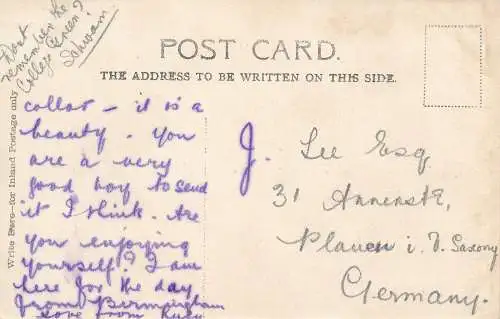 Dont
remember the
College Green?
POST CARD.
THE ADDRESS TO BE WRITTEN ON THIS SIDE.
Write Here—for Inland Postage only
collar – it is a
beauty. You
are a very
good boy to send
it I think. Are
you enjoying
yourself? I am
here for the day
from Birmingham
love from
J. Lee Esq.
31 Annenstr,
Plauen i. V. Saxony
Germany.